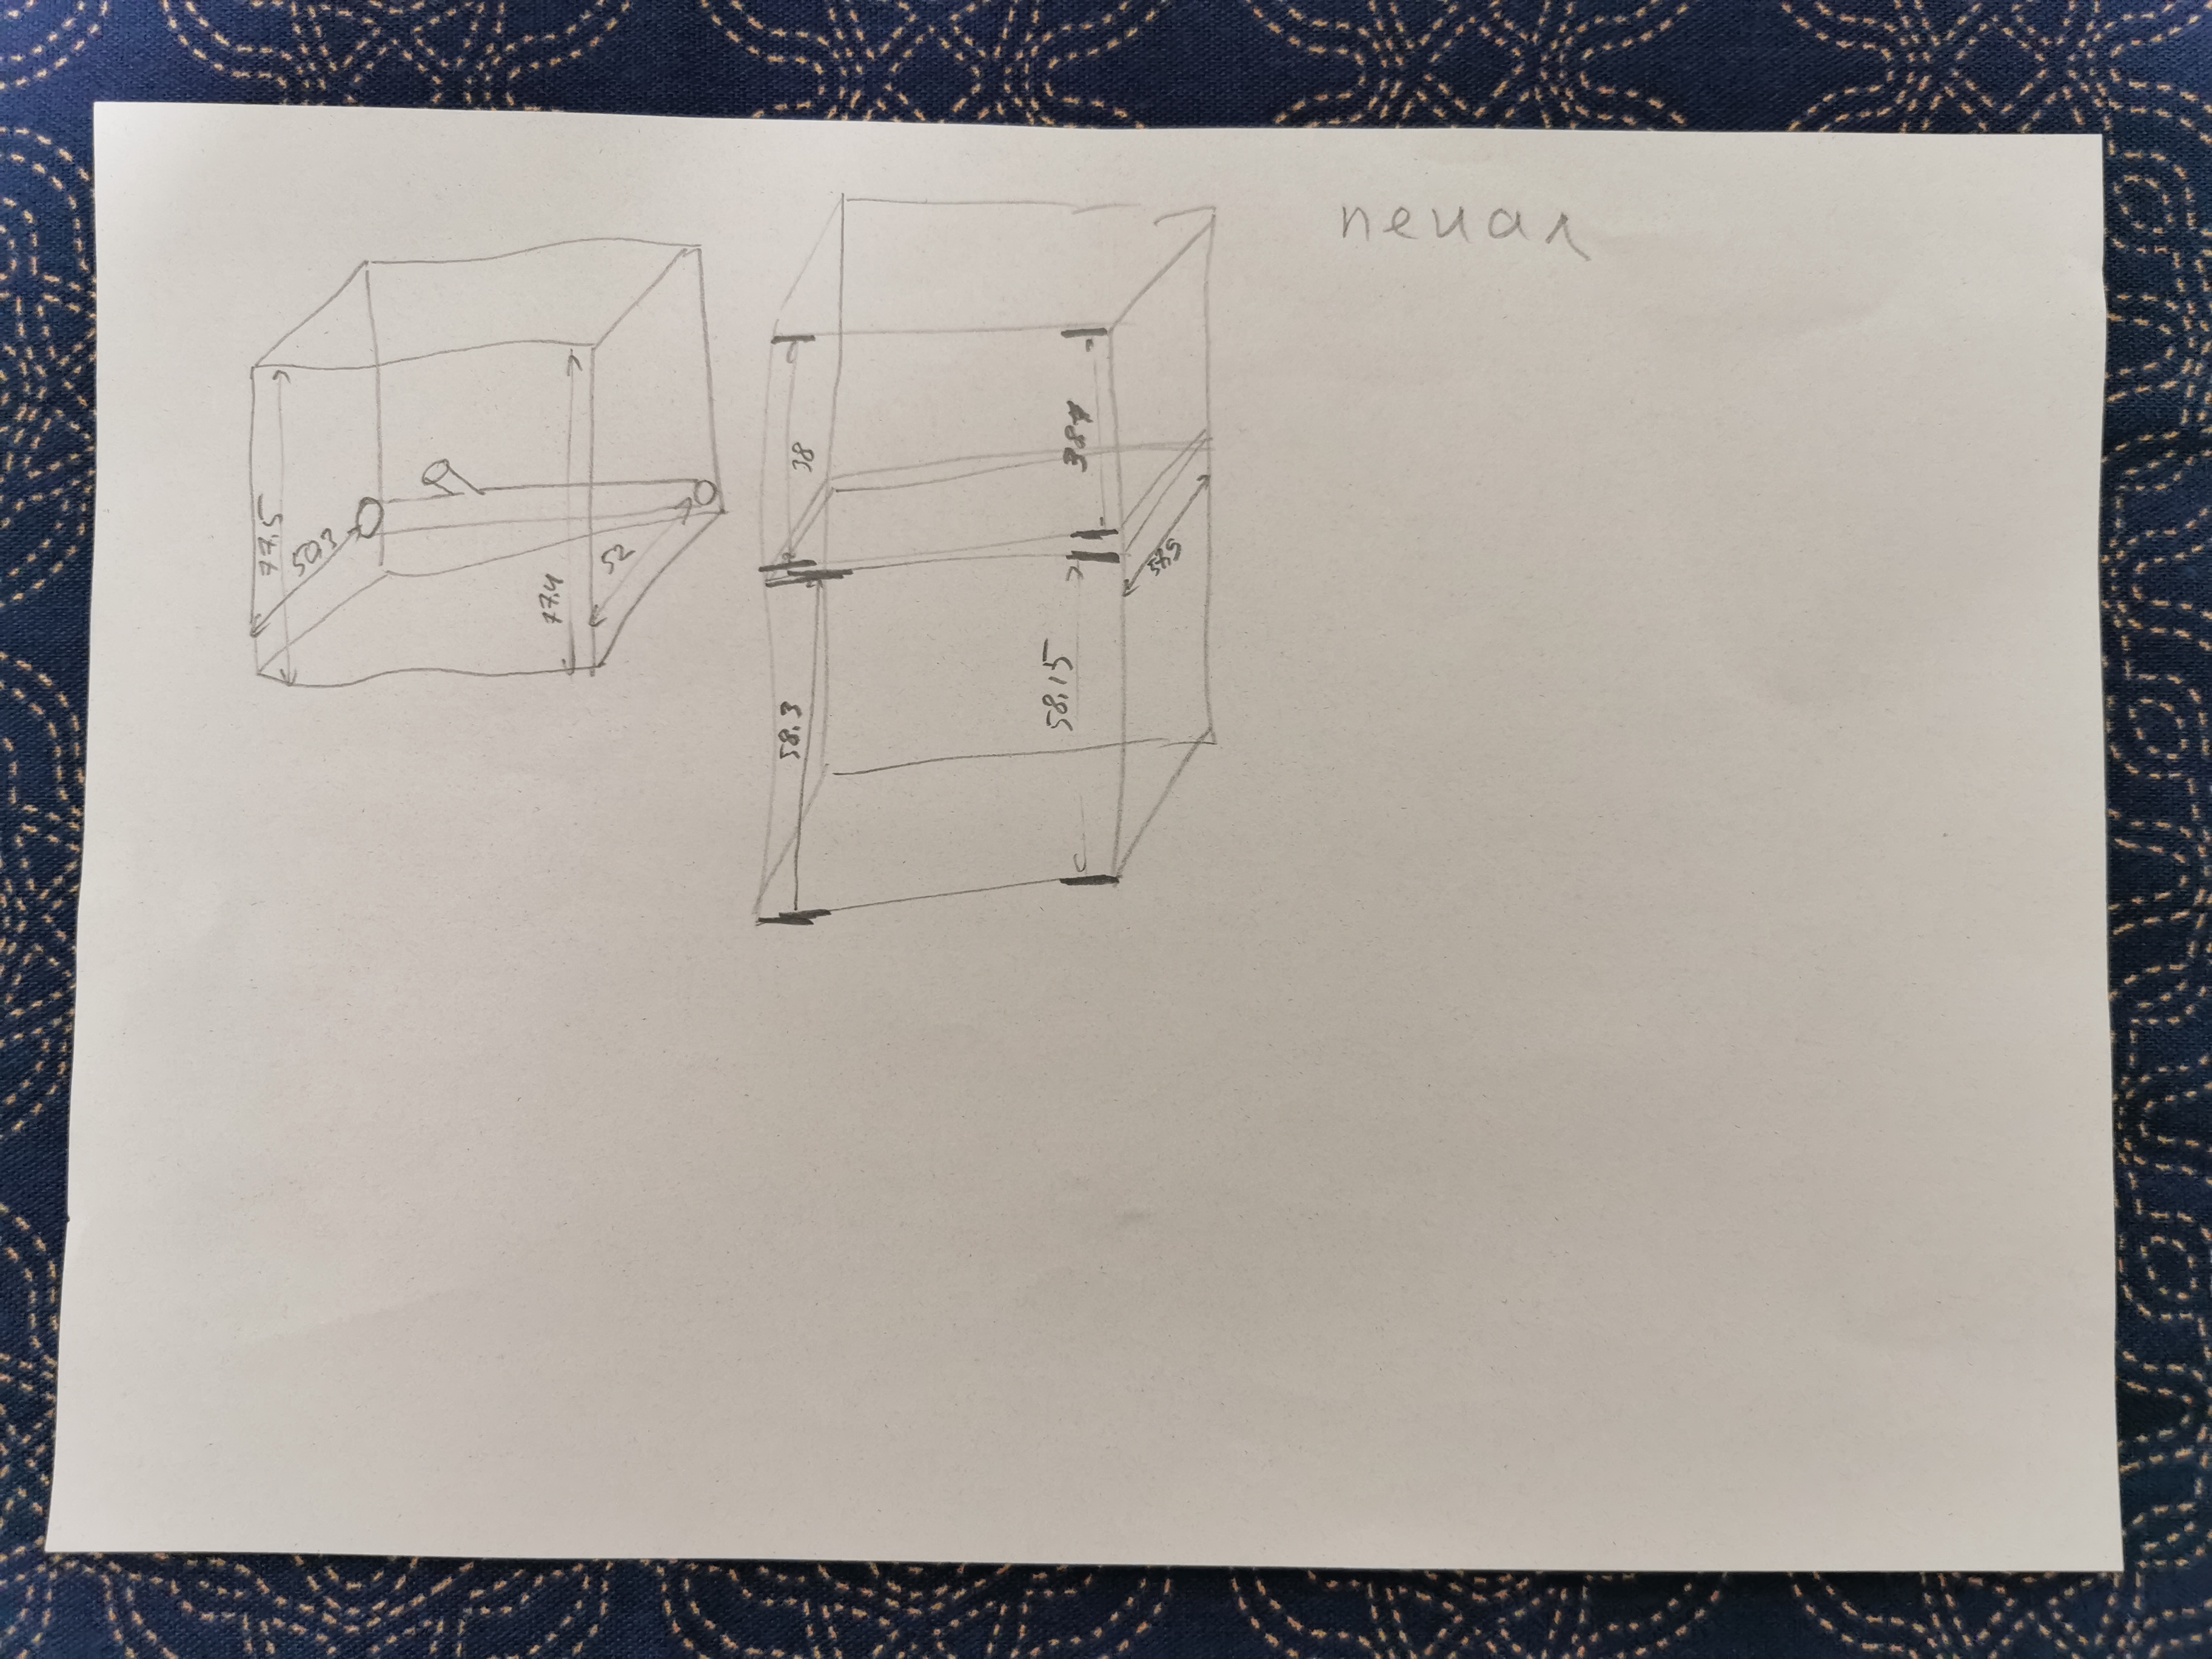 пенал
77.5
50.3
77.4
52
38
387
57.5
58.3
58.15